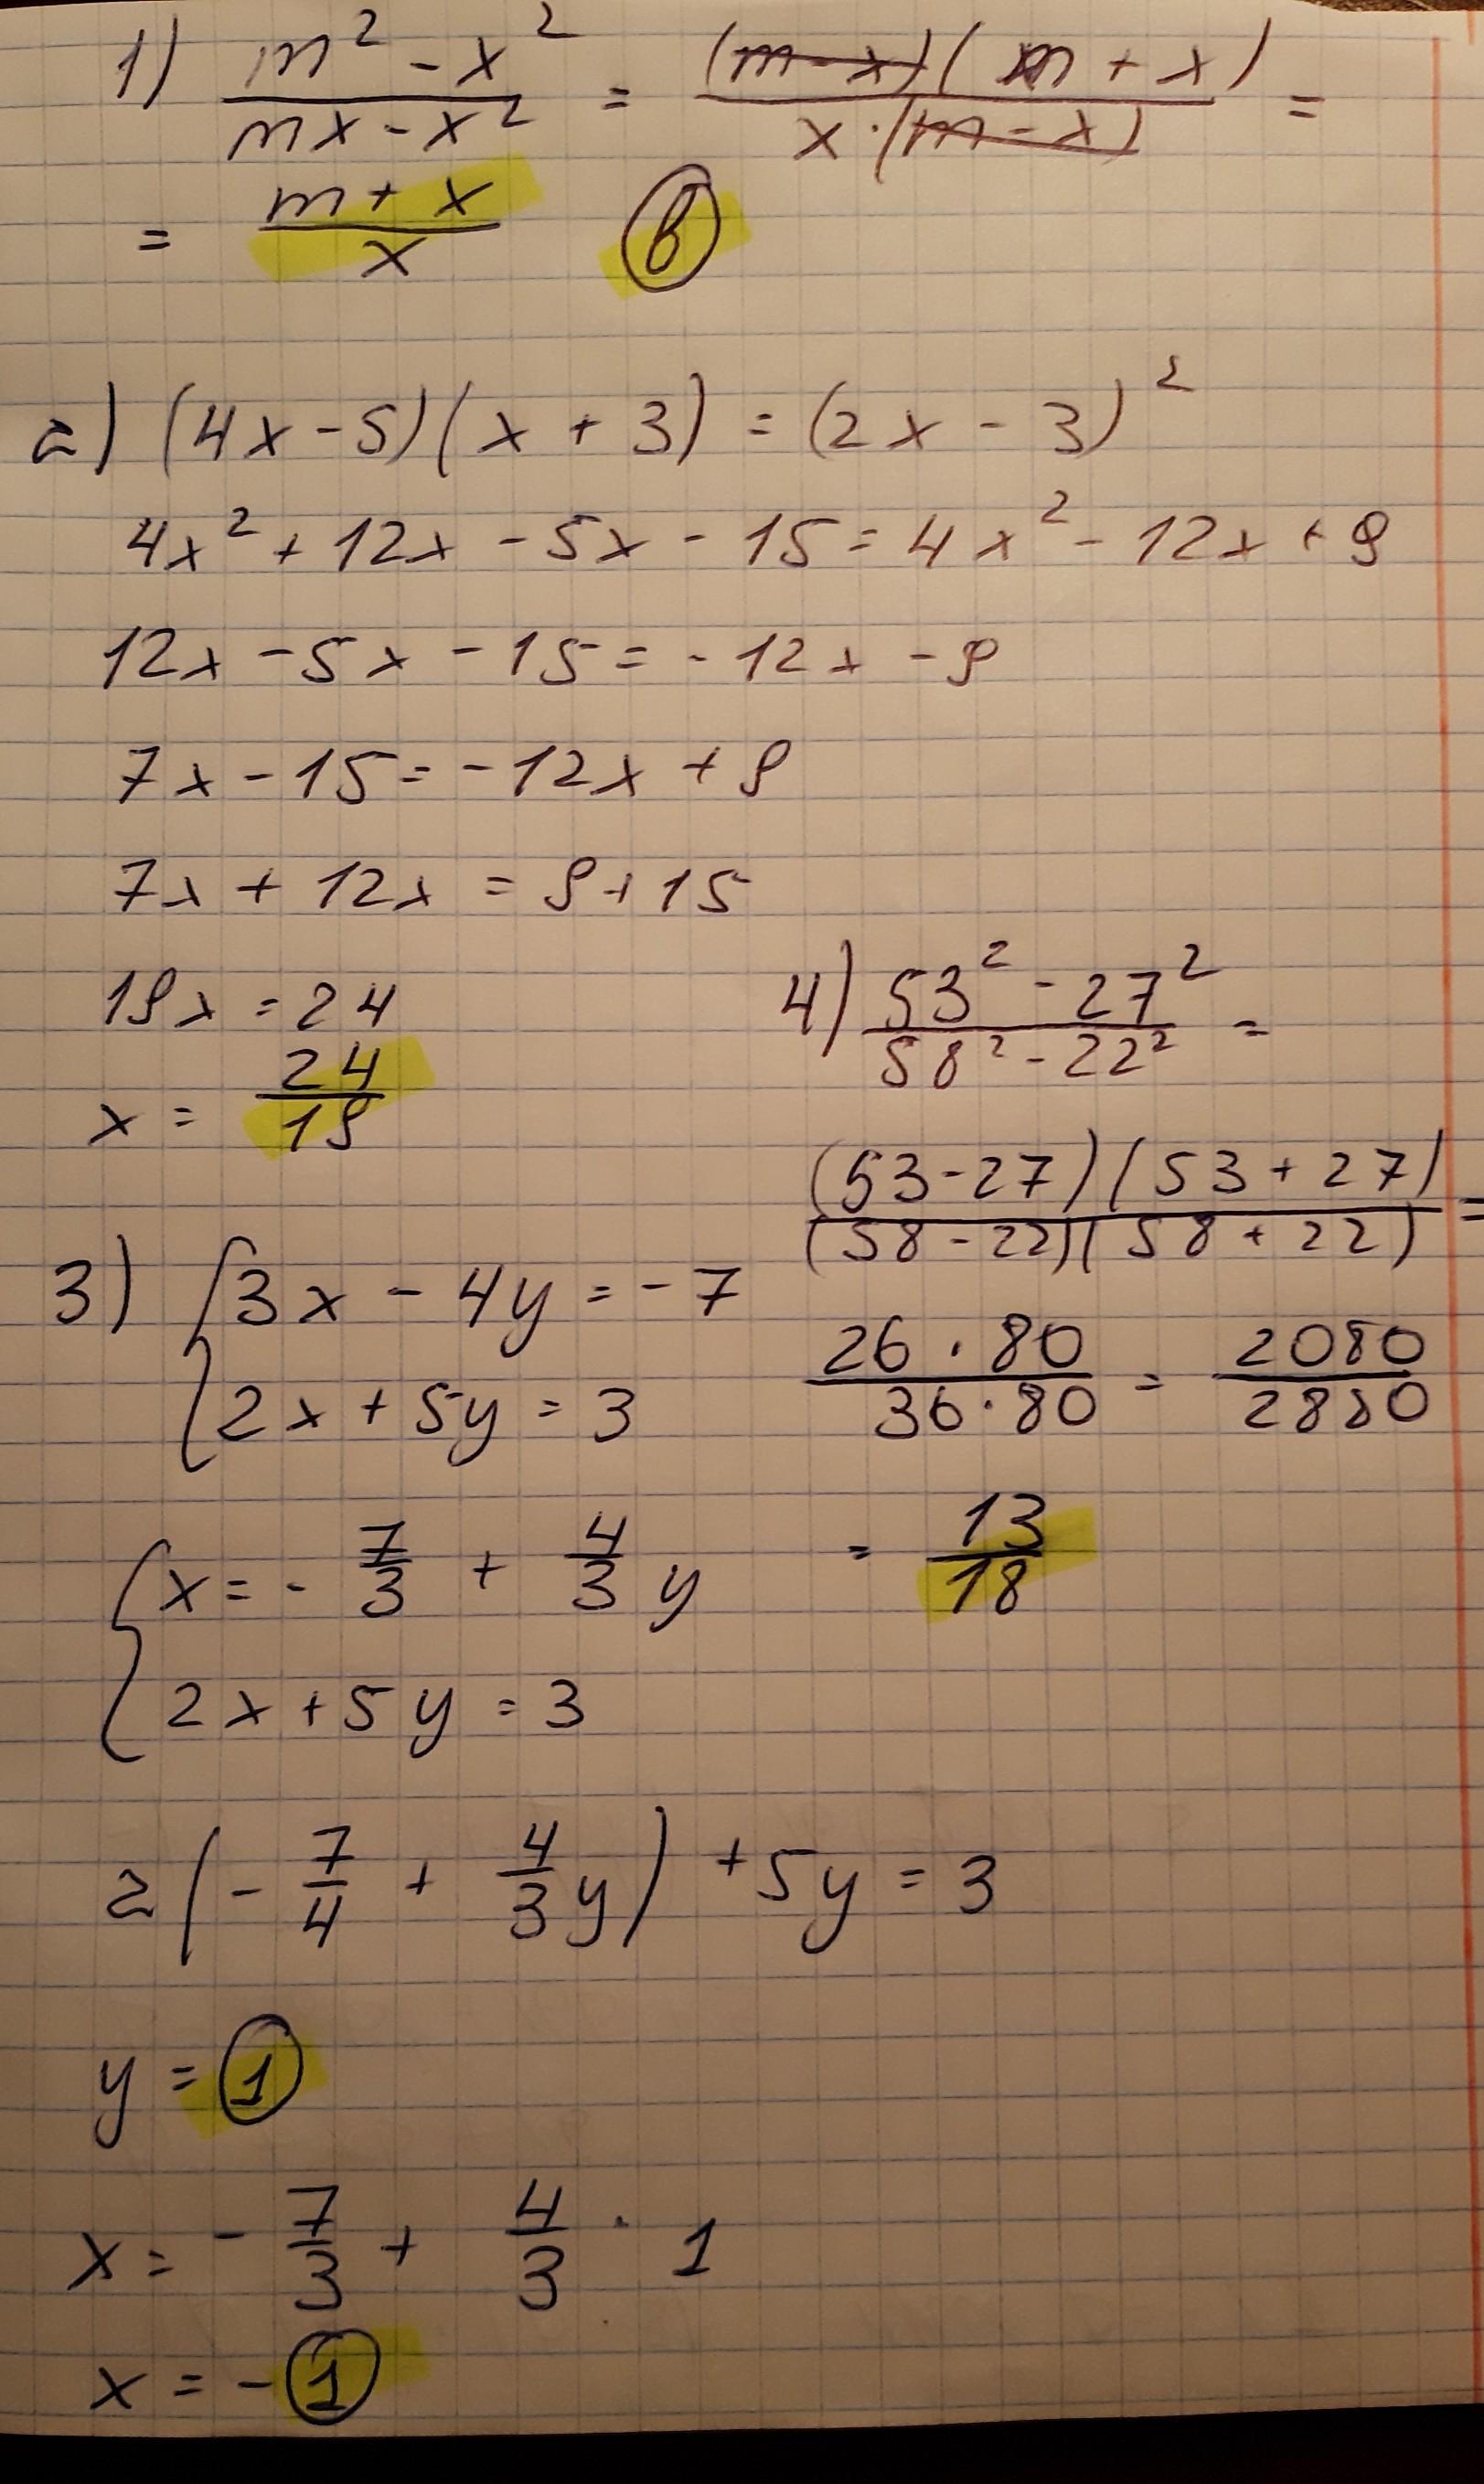 1) (m² - x²)/(mx - x²) = ((m - x)(m + x))/(x · (m - x)) =
= (m + x)/x в
2) (4x - 5)(x + 3) = (2x - 3)²
4x² + 12x - 5x - 15 = 4x² - 12x + 9
12x - 5x - 15 = - 12x - 9
7x - 15 = - 12x + 9
7x + 12x = 9 + 15
19x = 24
x = 24/19
3) { 3x - 4y = - 7
{ 2x + 5y = 3
{ x = - 7/3 + 4/3 y
{ 2x + 5y = 3
2(- 7/4 + 4/3 y) + 5y = 3
y = 1
x = - 7/3 + 4/3 · 1
x = - 1
4) (53² - 27²)/(58² - 22²) =
((53 - 27)(53 + 27))/((58 - 22)(58 + 22)) =
(26 · 80)/(36 · 80) = 2080/2880
= 13/18